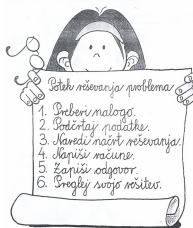 Potek reševanja problema
1. Preberi nalogo.
2. Podčrtaj podatke.
3. Naredi načrt reševanja.
4. Napiši račune.
5. Zapiši odgovor.
6. Preglej svojo rešitev.